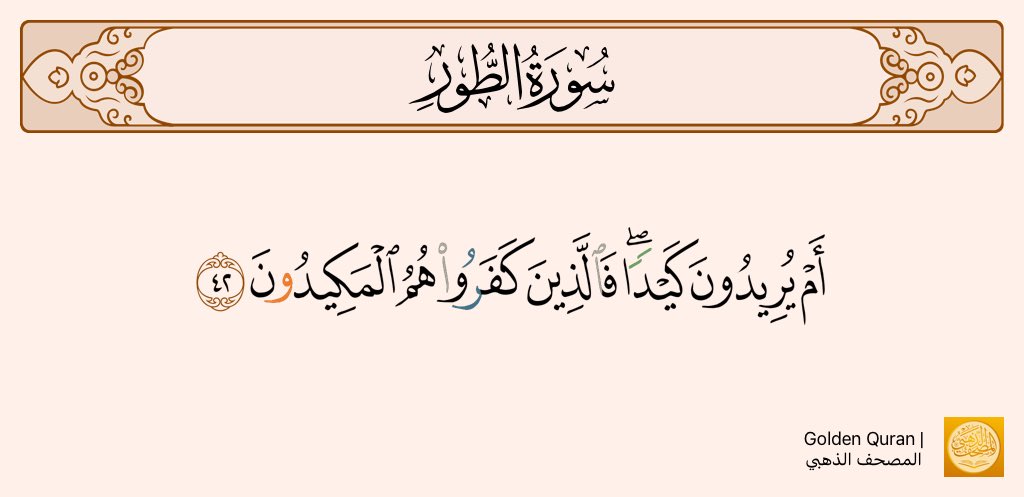 سُورَةُ الطُّورِ
أَمۡ يُرِيدُونَ كَيۡدٗاۖ فَٱلَّذِينَ كَفَرُواْ هُمُ ٱلۡمَكِيدُونَ ٤٢
Golden Quran |
المصحف الذهبي
المصحف الذهبي